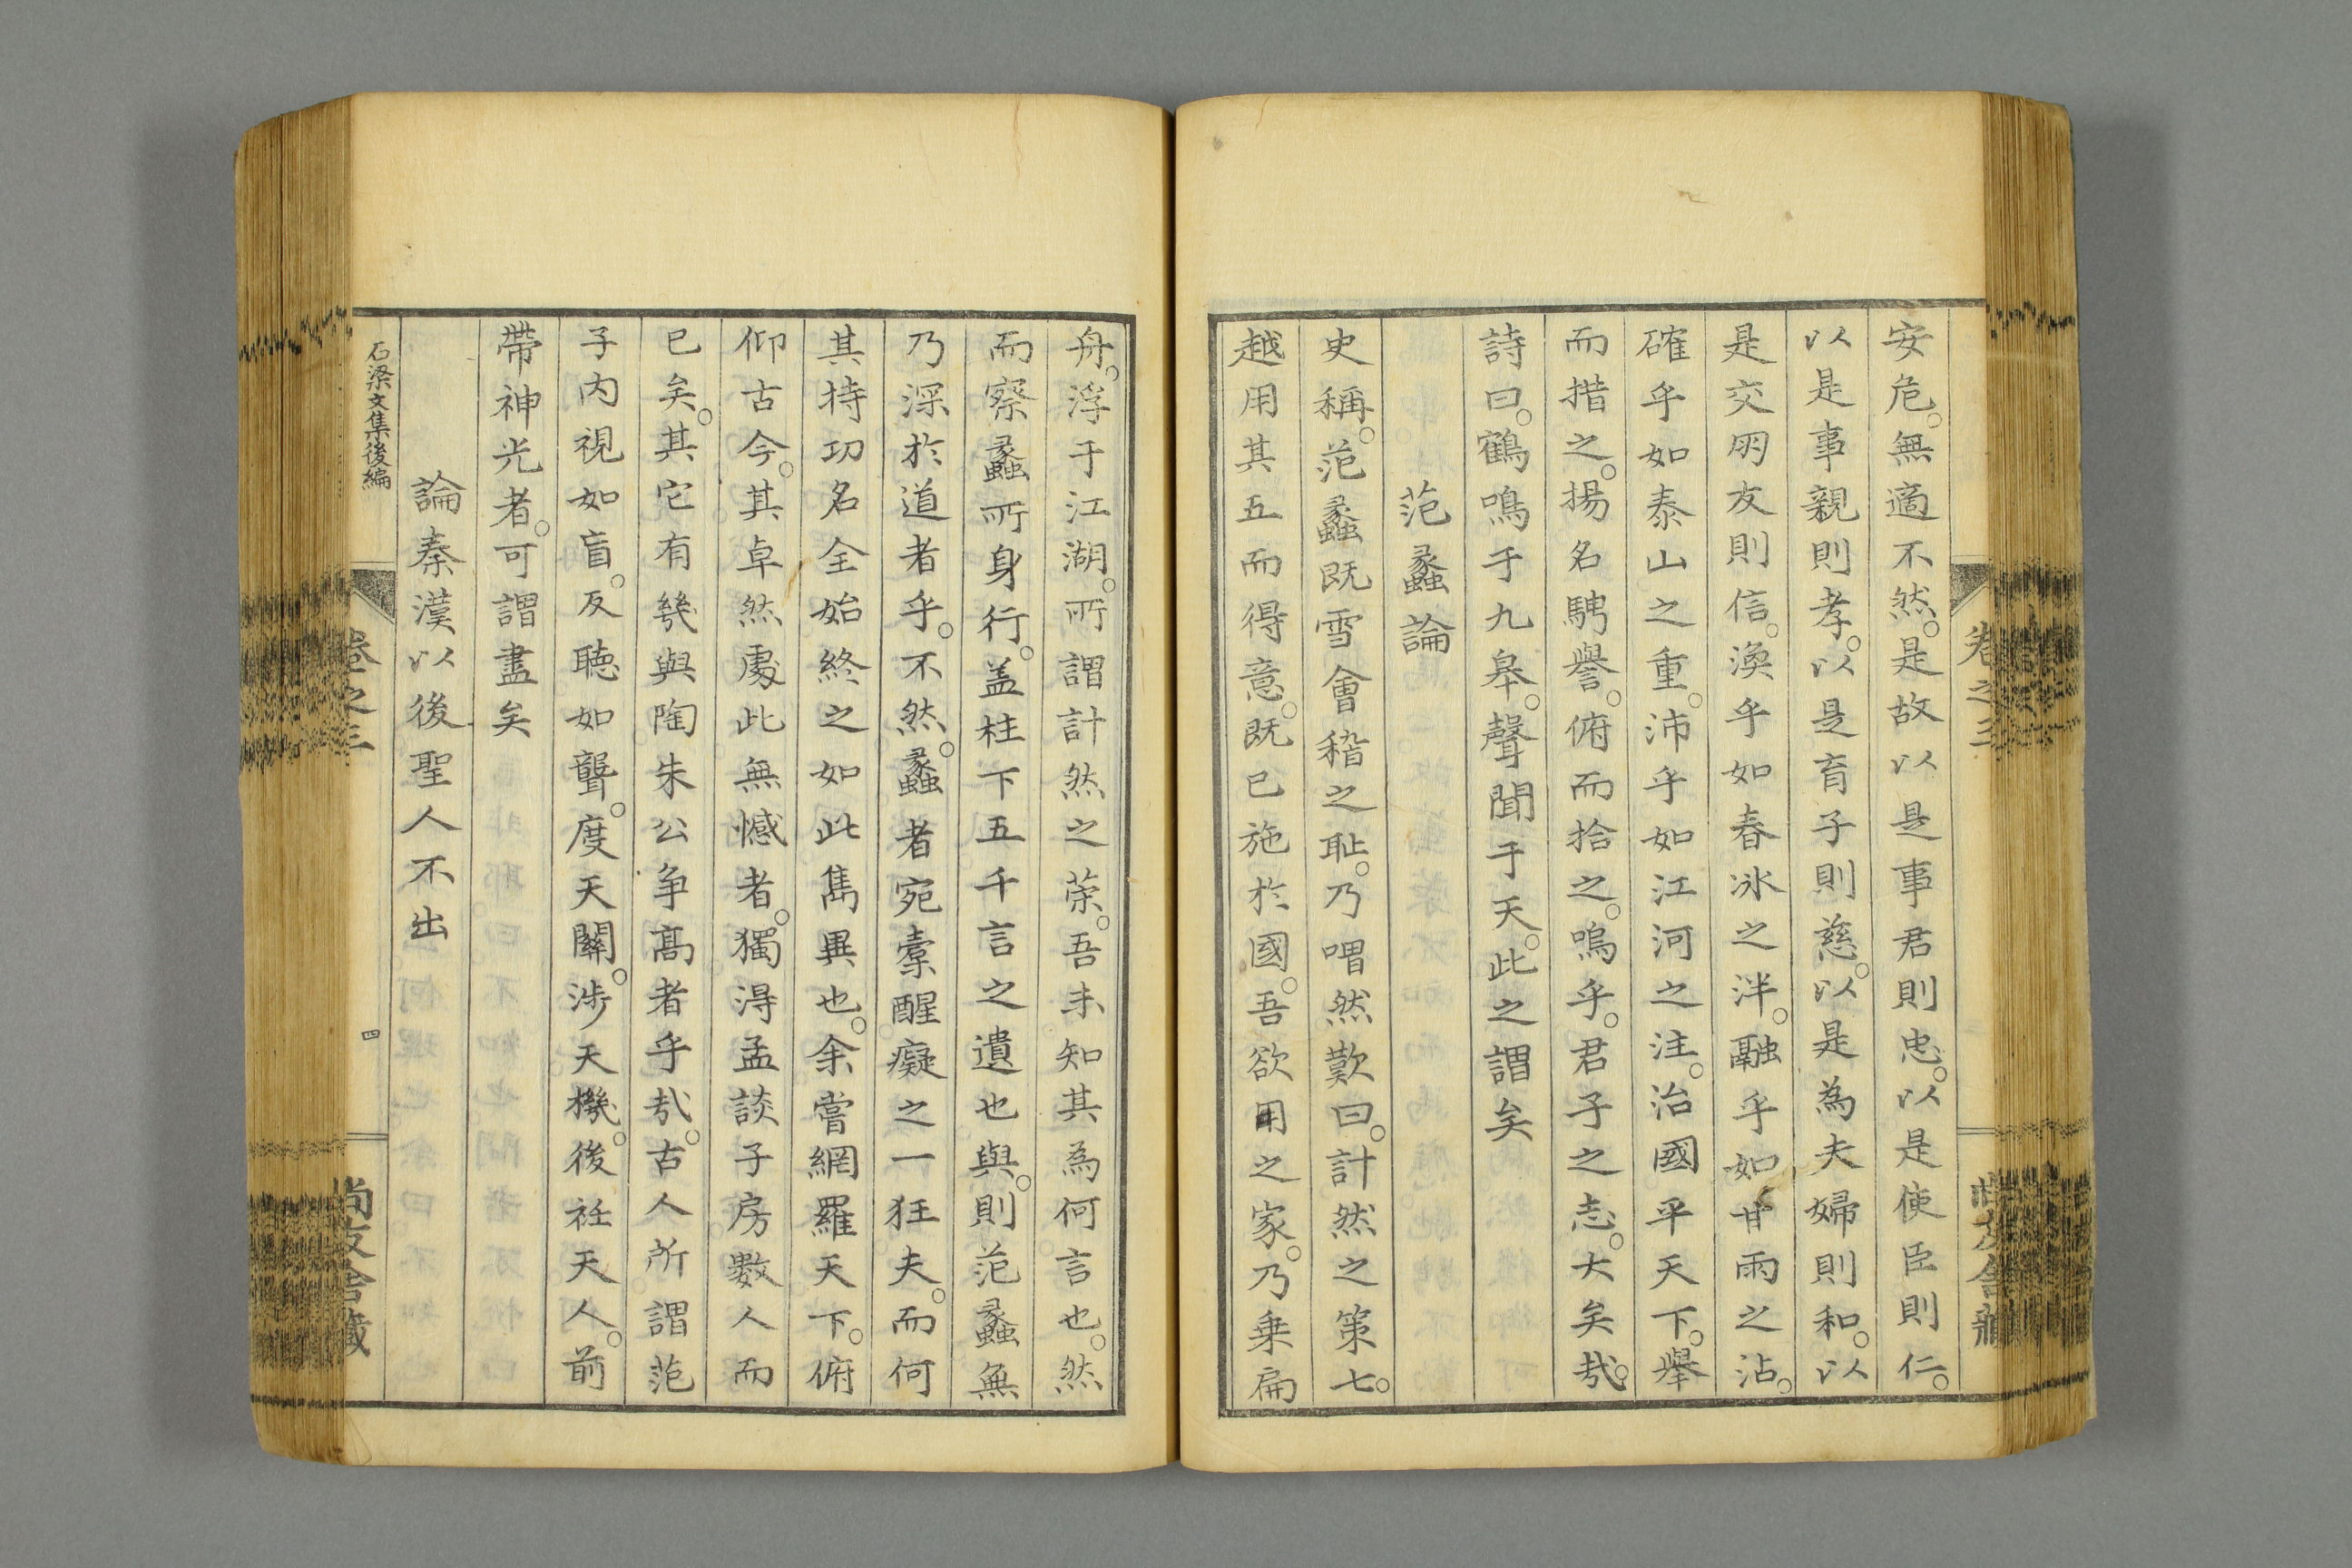 安危。無適不然。是故以是事君則忠。以是使臣則仁。
以是事親則孝。以是育子則慈。以是為夫婦則和。以
是交朋友則信。渙乎如春冰之泮。融乎如甘雨之沾。
確乎如泰山之重。沛乎如江河之注。治國平天下。舉
而措之。揚名騁譽。俯而拾之。嗚乎。君子之志。大矣哉。
詩曰。鶴鳴于九皋。聲聞于天。此之謂矣
范蠡論
史稱。范蠡既雪會稽之耻。乃喟然歎曰。計然之策七。
越用其五而得意。既已施於國。吾欲用之家。乃乗扁
舟。浮于江湖。所謂計然之策。吾未知其為何言也。然
而察蠡所身行。盖柱下五千言之遺也與。則范蠡無
乃深於道者乎。不然。蠡者宛橐醒癡之一狂夫。而何
其持功名全始終之如此雋異也。余嘗網羅天下。俯
仰古今。其卓然處此無憾者。獨得孟談子房數人而
已矣。其它有幾與陶朱公争高者乎哉。古人所謂范
子内視如盲。反聴如聾。度天關。渉天機。後衽天人。前
帶神光者。可謂盡矣
論秦漢以後聖人不出
石梁文集後編
卷之三
四
尚友舍藏